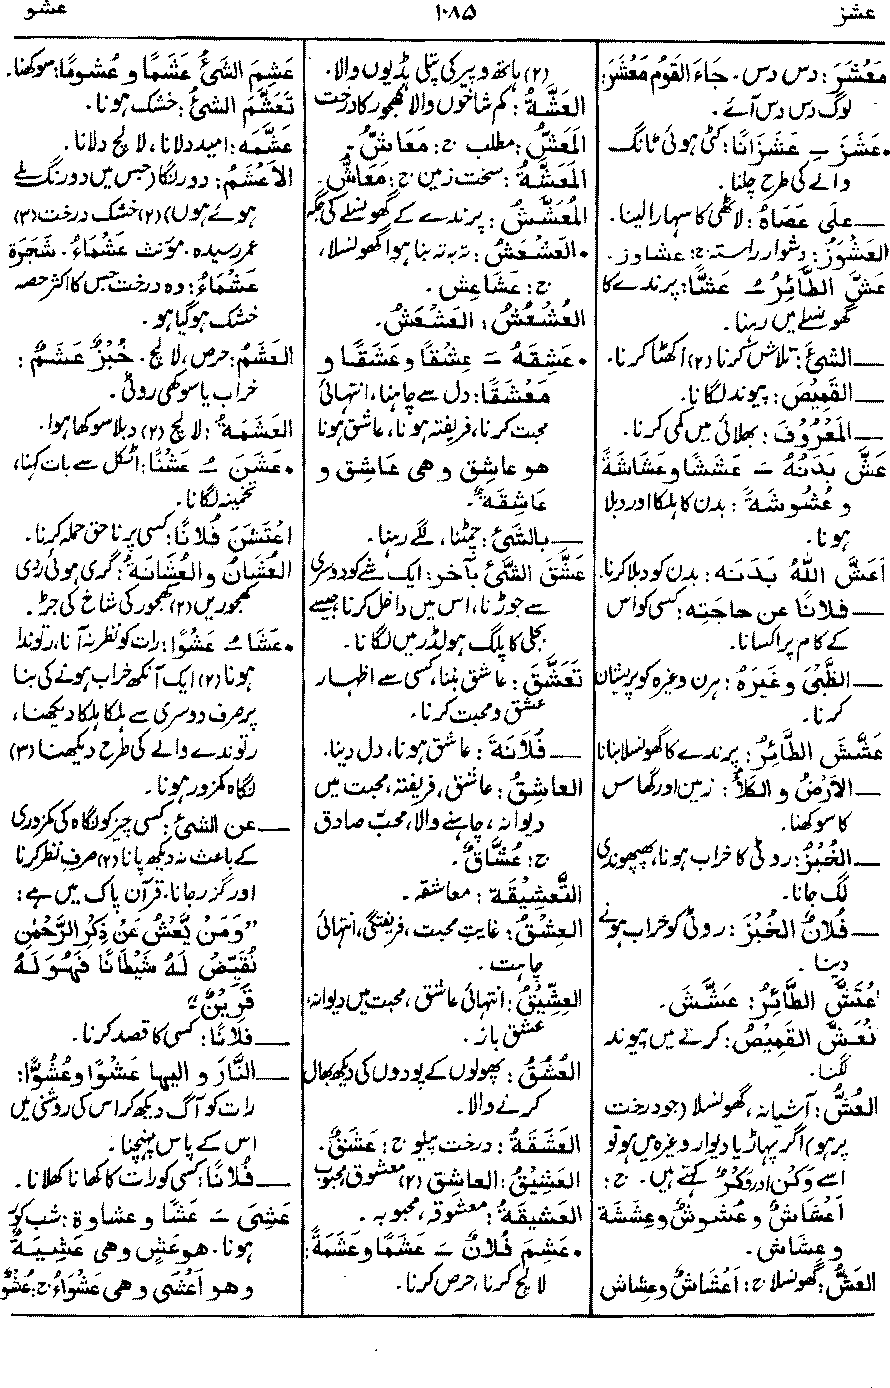 عشز
۱۰۸۵
عشو
مَعْشَرَ: دس دس۔ جَاءَ القَوْمُ مَعْشَرَ:
لوگ دس دس آئے۔
• عَشَزَ ــِ عَشَزَانًا: کٹی ہوئی ٹانگ
والے کی طرح چلنا۔
ــــ علی عَصَاهُ: لاٹھی کا سہارا لینا۔
العَشْوَزُ: دشوار راستہ ج: عشاوز۔
عَشَّ الطَّائِرُ ــُ عَشًّا: پرندے کا
گھونسلے میں رہنا۔
ــــ الشیَٔ: تلاش کرنا (۲) اکھٹا کرنا۔
ــــ القَمِيصَ: پیوند لگانا۔
ــــ المَعْرُوْفَ: بھلائی میں کمی کرنا۔
عَشَّ بَدَنُهُ ــَ عَشَشًا وعَشَاشَةً
و عُشُوشَةً: بدن کا ہلکا اور دبلا
ہونا۔
اَعَشَّ اللهُ بَدَنَه: بدن کو دبلا کرنا۔
ــــ فلانًا عن حاجَتِه: کسی کو اس
کے کام پر اکسانا۔
ــــ الظَّبْیَ وغَيرَهُ: ہرن وغیرہ کو پریشان
کرنا۔
عَشَّشَ الطَّائِرُ: پرندے کا گھونسلا بنانا
ــــ الاَرْضُ و الکَلَأُ: زمین اور گھاس
کا سوکھنا۔
ــــ الخُبْزُ: روٹی کا خراب ہونا، پھپھوندی
لگ جانا۔
ــــ فُلَانٌ الخُبْزَ: روٹی کو خراب ہونے
دینا۔
اعْتَشَّ الطَّائِرُ: عَشَّشَ۔
تَعَشَّ القَمِيصُ: کرتے میں پیوند
لگنا۔
العُشُّ: آشیانہ، گھونسلا (جو درخت
پر ہو) اگر پہاڑ یا دیوار وغیرہ میں ہو تو
اسے وَکْن اور وَکْرٌ کہتے ہیں۔ ج:
اَعْشَاشٌ وعُشوشٌ وعِشَشَة
وعِشَاش۔
العَشُّ: گھونسلا ج: اَعْشَاشٌ وعِشاش
(۲) ہاتھ و پیر کی پتلی ہڈیوں والا۔
العَشَّةُ: کم شاخوں والا کھجور کا درخت
المَعَشُّ: مطلب ج: مَعَاشُّ۔
المَعَشَّةُ: سخت زمین ج: مَعَاشُّ۔
المُعَشَّشُ: پرندے کے گھونسلے کی جگہ
• العَشْعَشُ: تہ بتہ بنا ہوا گھونسلا،
ج: عَشَاعِش۔
العُشْعُشُ: العَشْعَشُ۔
• عَشِقَهُ ــَ عِشْقًا وعَشَقًا و
مَعْشَقًا: دل سے چاہنا، انتہائی
محبت کرنا، فریفتہ ہونا، عاشق ہونا
هو عاشِق وهی عَاشِق و
عَاشِقَةٌ۔
ــــ بالشیٔ: چمٹنا، لگے رہنا۔
عَشَّقَ الشَّیَٔ بآخر: ایک شے کو دوسری
سے جوڑنا، اس میں داخل کرنا جیسے
بجلی کا پلگ ہولڈر میں لگانا۔
تَعَشَّقَ: عاشق بننا، کسی سے اظہار
عشق و محبت کرنا۔
ــــ فُلَانَةَ: عاشق ہونا، دل دینا۔
العاشِقُ: عاشق، فریفتہ، محبت میں
دیوانہ، چاہنے والا، محبّ صادق
ج: عُشَّاقٌ۔
التَّعْشِيْقَة: معاشقہ۔
العِشْقُ: غایت محبت، فریفتگی، انتہائی
چاہت۔
العِشِّيْقُ: انتہائی عاشق، محبت میں دیوانہ،
عشق باز۔
العُشُقُ: پھولوں کے پودوں کی دیکھ بھال
کرنے والا۔
العَشَقَةُ: درخت پیلو ج: عَشَقٌ۔
العَشِيْقُ: العاشِق (۲) معشوق، محبوب
العَشِيقَةُ: معشوقہ، محبوبہ۔
• عَشِمَ فُلَانٌ ــَ عَشَمًا وعَشَمَةً:
لالچ کرنا، حرص کرنا۔
عَشِمَ الشیُٔ عَشَمًا و عُشومًا: سوکھنا۔
تَعَشَّمَ الشیُٔ: خشک ہونا۔
عَشَّمَه: امید دلانا، لالچ دلانا۔
الاَعْشَمُ: دورنگا (جس میں دو رنگ ملے
ہوئے ہوں) (۲) خشک درخت (۳)
عمر رسیدہ۔ مؤنث عَشْمَاءُ۔ شَجَرَة
عَشْمَاءُ: وہ درخت جس کا اکثر حصہ
خشک ہوگیا ہو۔
العَشَمُ: حرص، لالچ۔ خُبْزٌ عَشَمٌ:
خراب یا سوکھی روٹی۔
العَشَمَةُ: لالچ (۲) دبلا سوکھا ہوا۔
• عَشَنَ ــُ عَشْنًا: اٹکل سے بات کہنا،
تخمینہ لگانا۔
اعْتَشَنَ فُلَانًا: کسی پر ناحق حملہ کرنا۔
العُشَانُ والعُشَانَةُ: گری ہوئی ردی
کھجوریں (۲) کھجور کی شاخ کی جڑ۔
• عَشَا ــُ عَشْوًا: رات کو نظر نہ آنا، رتوندا
ہونا (۲) ایک آنکھ خراب ہونے کی بنا
پر صرف دوسری سے ہلکا ہلکا دیکھنا،
رتوندے والے کی طرح دیکھنا (۳)
نگاہ کمزور ہونا۔
ــــ عن الشیٔ: کسی چیز کو نگاہ کی کمزوری
کے باعث نہ دیکھ پانا (۲) صرفِ نظر کرنا
اور گزر جانا۔ قرآن پاک میں ہے:
”وَمَنْ يَّعْشُ عَنْ ذِكْرِ الرَّحْمٰنِ
نُقَيِّضْ لَهُ شَيْطَانًا فَهُوَ لَهُ
قَرِيْنٌ“
ــــ فلانًا: کسی کا قصد کرنا۔
ــــ النَّارَ و الیها عَشْوًا وعُشُوًّا:
رات کو آگ دیکھ کر اس کی روشنی میں
اس کے پاس پہنچنا۔
ــــ فُلَانًا: کسی کو رات کا کھانا کھلانا۔
عَشِیَ ــَ عَشًا و عشاوة: شب کور
ہونا۔ هوعَشٍ وهی عَشِيَةٌ
وهو اَعْشٰی وهی عَشْوَاءُ ج: عُشْوٌ